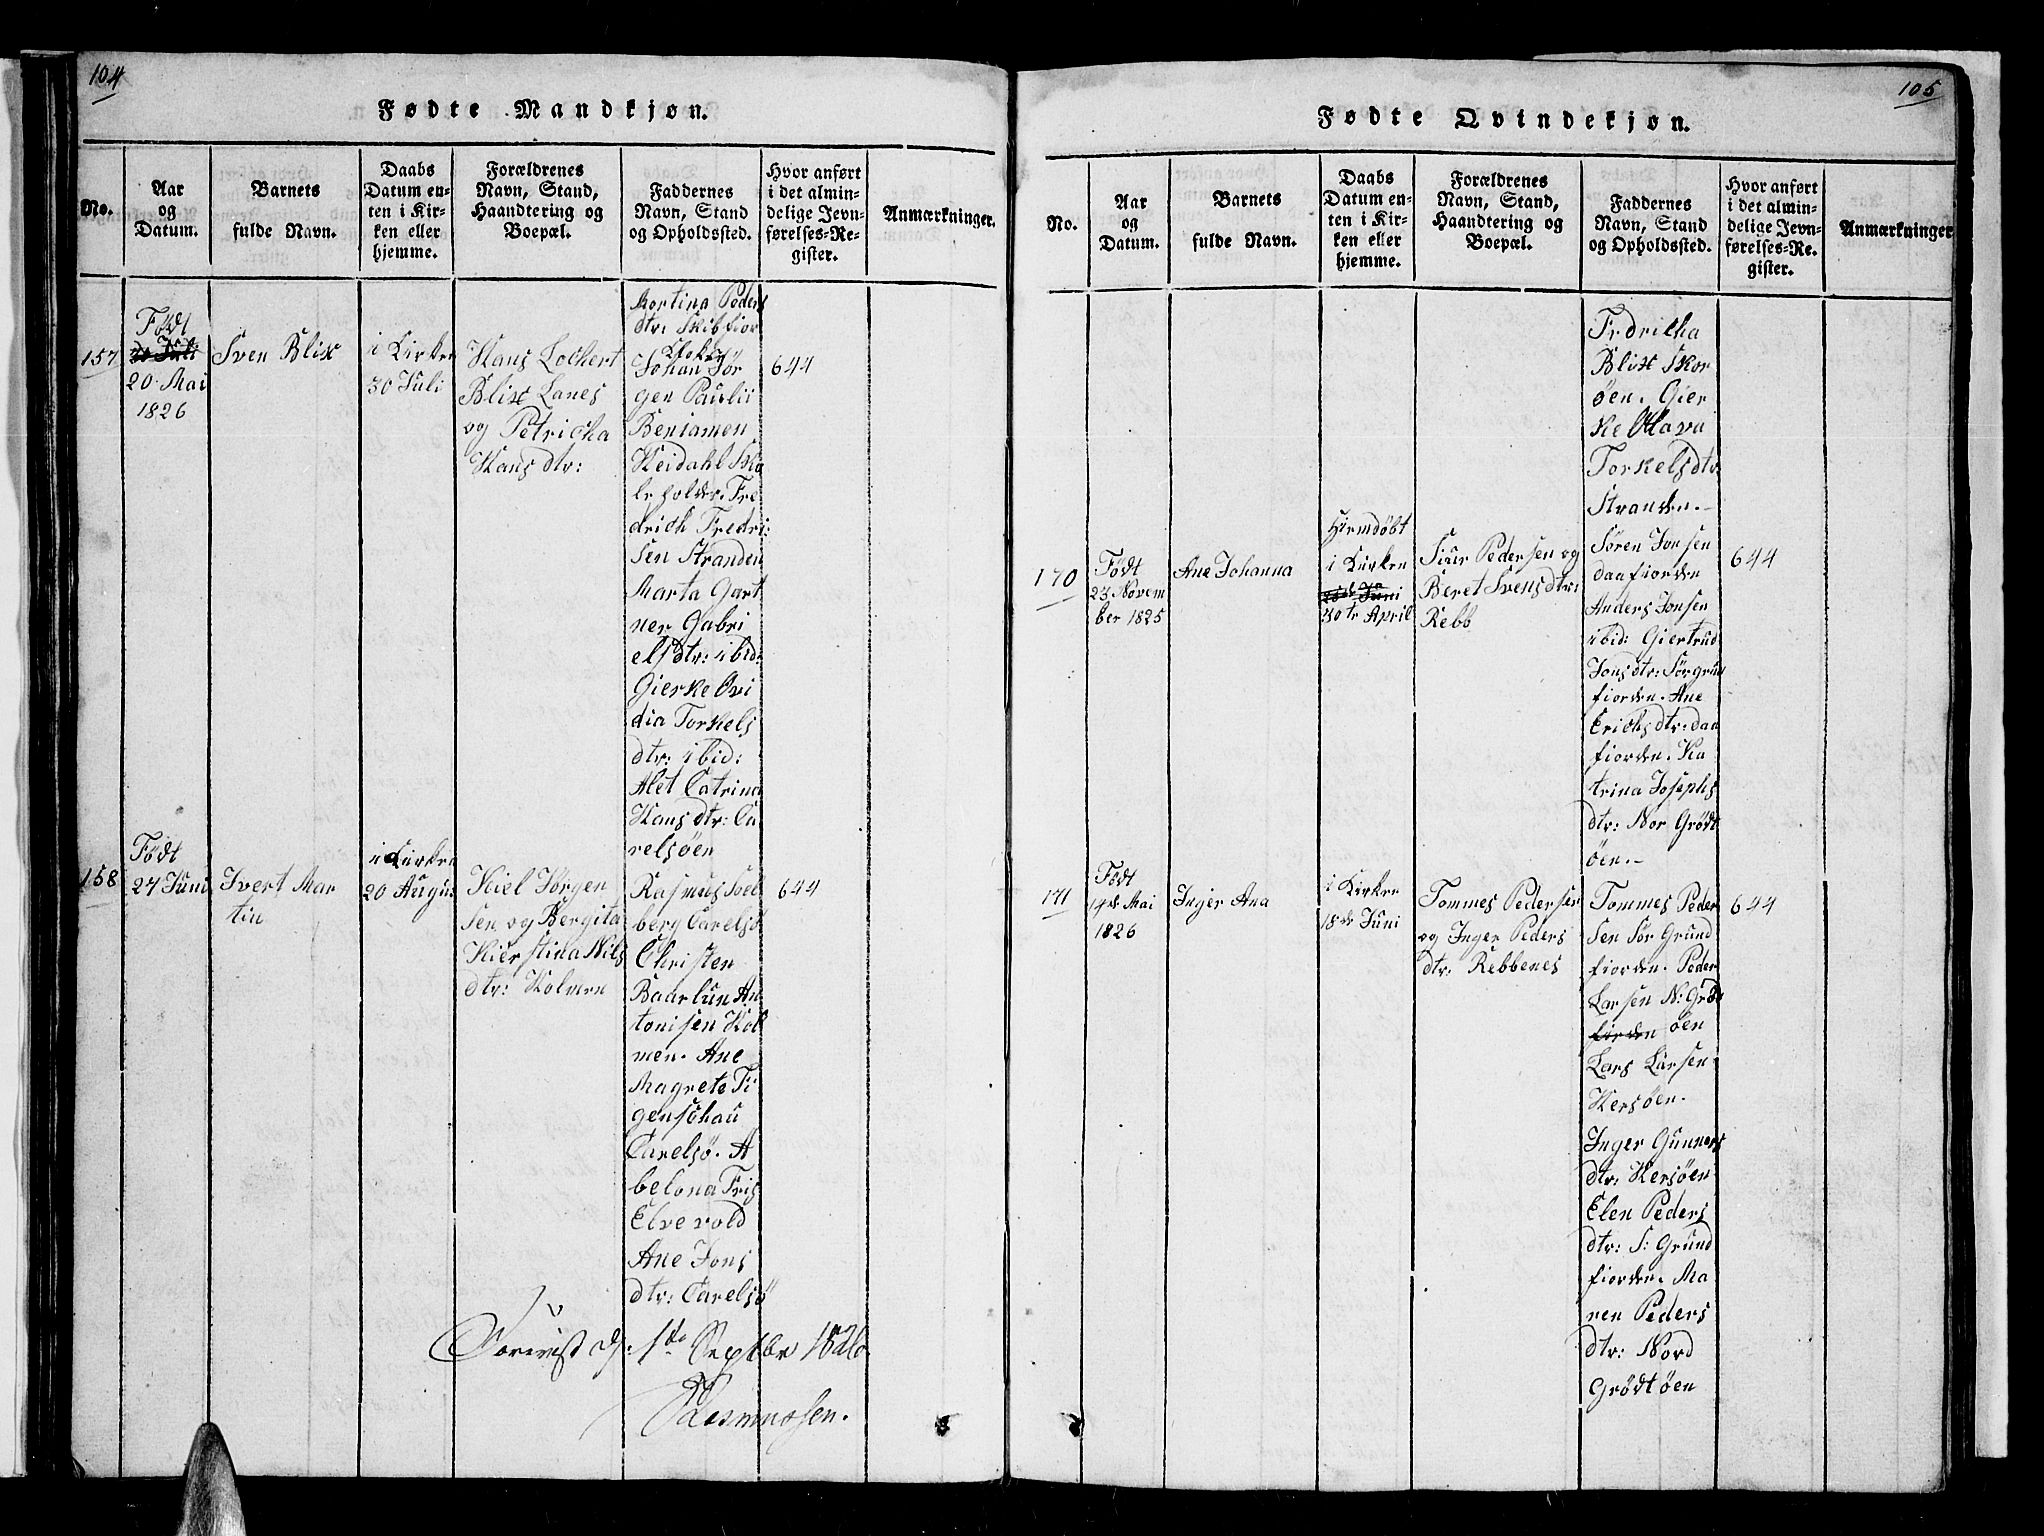 104
Fødte Mandkjøn.
No.
Aar
og
Datum.
Barnets
fulde Navn.
Daabs
Datum en-
ten i Kir-
ken eller
hjemme.
Forældrenes
Navn, Stand,
Haandtering og
Boepæl.
Faddernes
Navn, Stand
og Opholdssted.
Hvor anført
i det almin-
delige Jevn-
førelses-Re-
gister.
Anmærkninger.
157
Født
20 Juli
20 Mai
1826
Sven Blix
i Kirken
30 Juli
Hans Lochert
Blix Lanes
og Petricka
Hansdtr:
Mortina Peders
dtr: Skibfior
Kloker
Johan Jør
gen Paulii
Beniamen
Heidahl Sko
leholder. Fre
drich Fredri
sen Stranden
Marta Gart
ner Gabri
elsdtr: ibid:
Gierke Ovi
dia Torkels
dtr: ibid:
Alet Catrina
Hansdtr: Ca
relsöen
644
158
Født
27 Juni
Ivert Mar
tin
i Kirken
20 Augus
Kiel Jørgen
sen og Bergita
Kierstina Nils
dtr: Holmen
Rasmus Soel
berg Carelsö
Christen
Baarlun An
tonisen Hol
men. Ane
Magrete Fi
genschau
Carelsö. A
belona Friis
Elvevold
Ane Jons
dtr: Carelsö
644
1ste Septbr 1826
Rasmussen.
105
Fødte Qvindekjøn.
No.
Aar
og
Datum.
Barnets
fulde Navn.
Daabs
Datum en-
ten i Kir-
ken eller
hjemme.
Forældrenes
Navn, Stand,
Haandtering og
Boepæl.
Faddernes
Navn, Stand
og Opholdssted.
Hvor anført
i det almin-
delige Jevn-
førelses-Re-
gister.
Anmærkninger
Fredricka
Blix Skor
öen. Gier
ke Olava
Torkelsdtr
Stranden.-
170
Født
23 Novem
ber 1825
Ane Johanna
Hiemdöbt
i Kirken
Juni
30te April
Siur Pedersen og
Beret Svensdtr:
Rebb
Sören Jonsen
daafiorden
Anders Jonsen
ibid: Giertrud
Jonsdtr: Sörgrun
fiorden. Ane
Erichsdtr: daa
fiorden. Ka
trina Josephs
dtr: Nor Grödt
öen.-
644
171
Født
14de Mai
1826
Inger Ana
i Kirken
18de Juni
Tommes Pedersen
og Inger Peders
dtr: Rebbenes
Tommes Peder
sen Sör Grund
fiorden. Peder
Larsen N: Gröt
fiorden öen
Lars Larsen
Hersöen.
Inger Gunners
dtr: Hersöen
Elen Peders
dtr: S: Grund
fiorden. Ma
ren Peders
dtr: Nord
Grödtöen
644